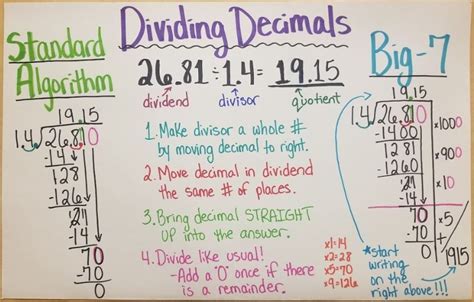 Dividing Decimals
Standard
Algorithm
26.81 ÷ 1.4 = 19.15
dividend divisor quotient
Big-7
19.15
1.4 26.810
-14
128
-126
21
-14
70
-70
0
1. Make divisor a whole #
by moving decimal to right.
2. Move decimal in dividend
the same # of places.
3. Bring decimal STRAIGHT
UP into the answer.
4. Divide like usual!
-Add a "0" once if there
is a remainder.
x1=14
x2=28
x5=70
x9=126
19.15
1.4 26.810
-1400 x1000
1281
-1260 x900
211
-140 x10
70
-70 x5
0 1915
*start
writing
on the
right above!!!